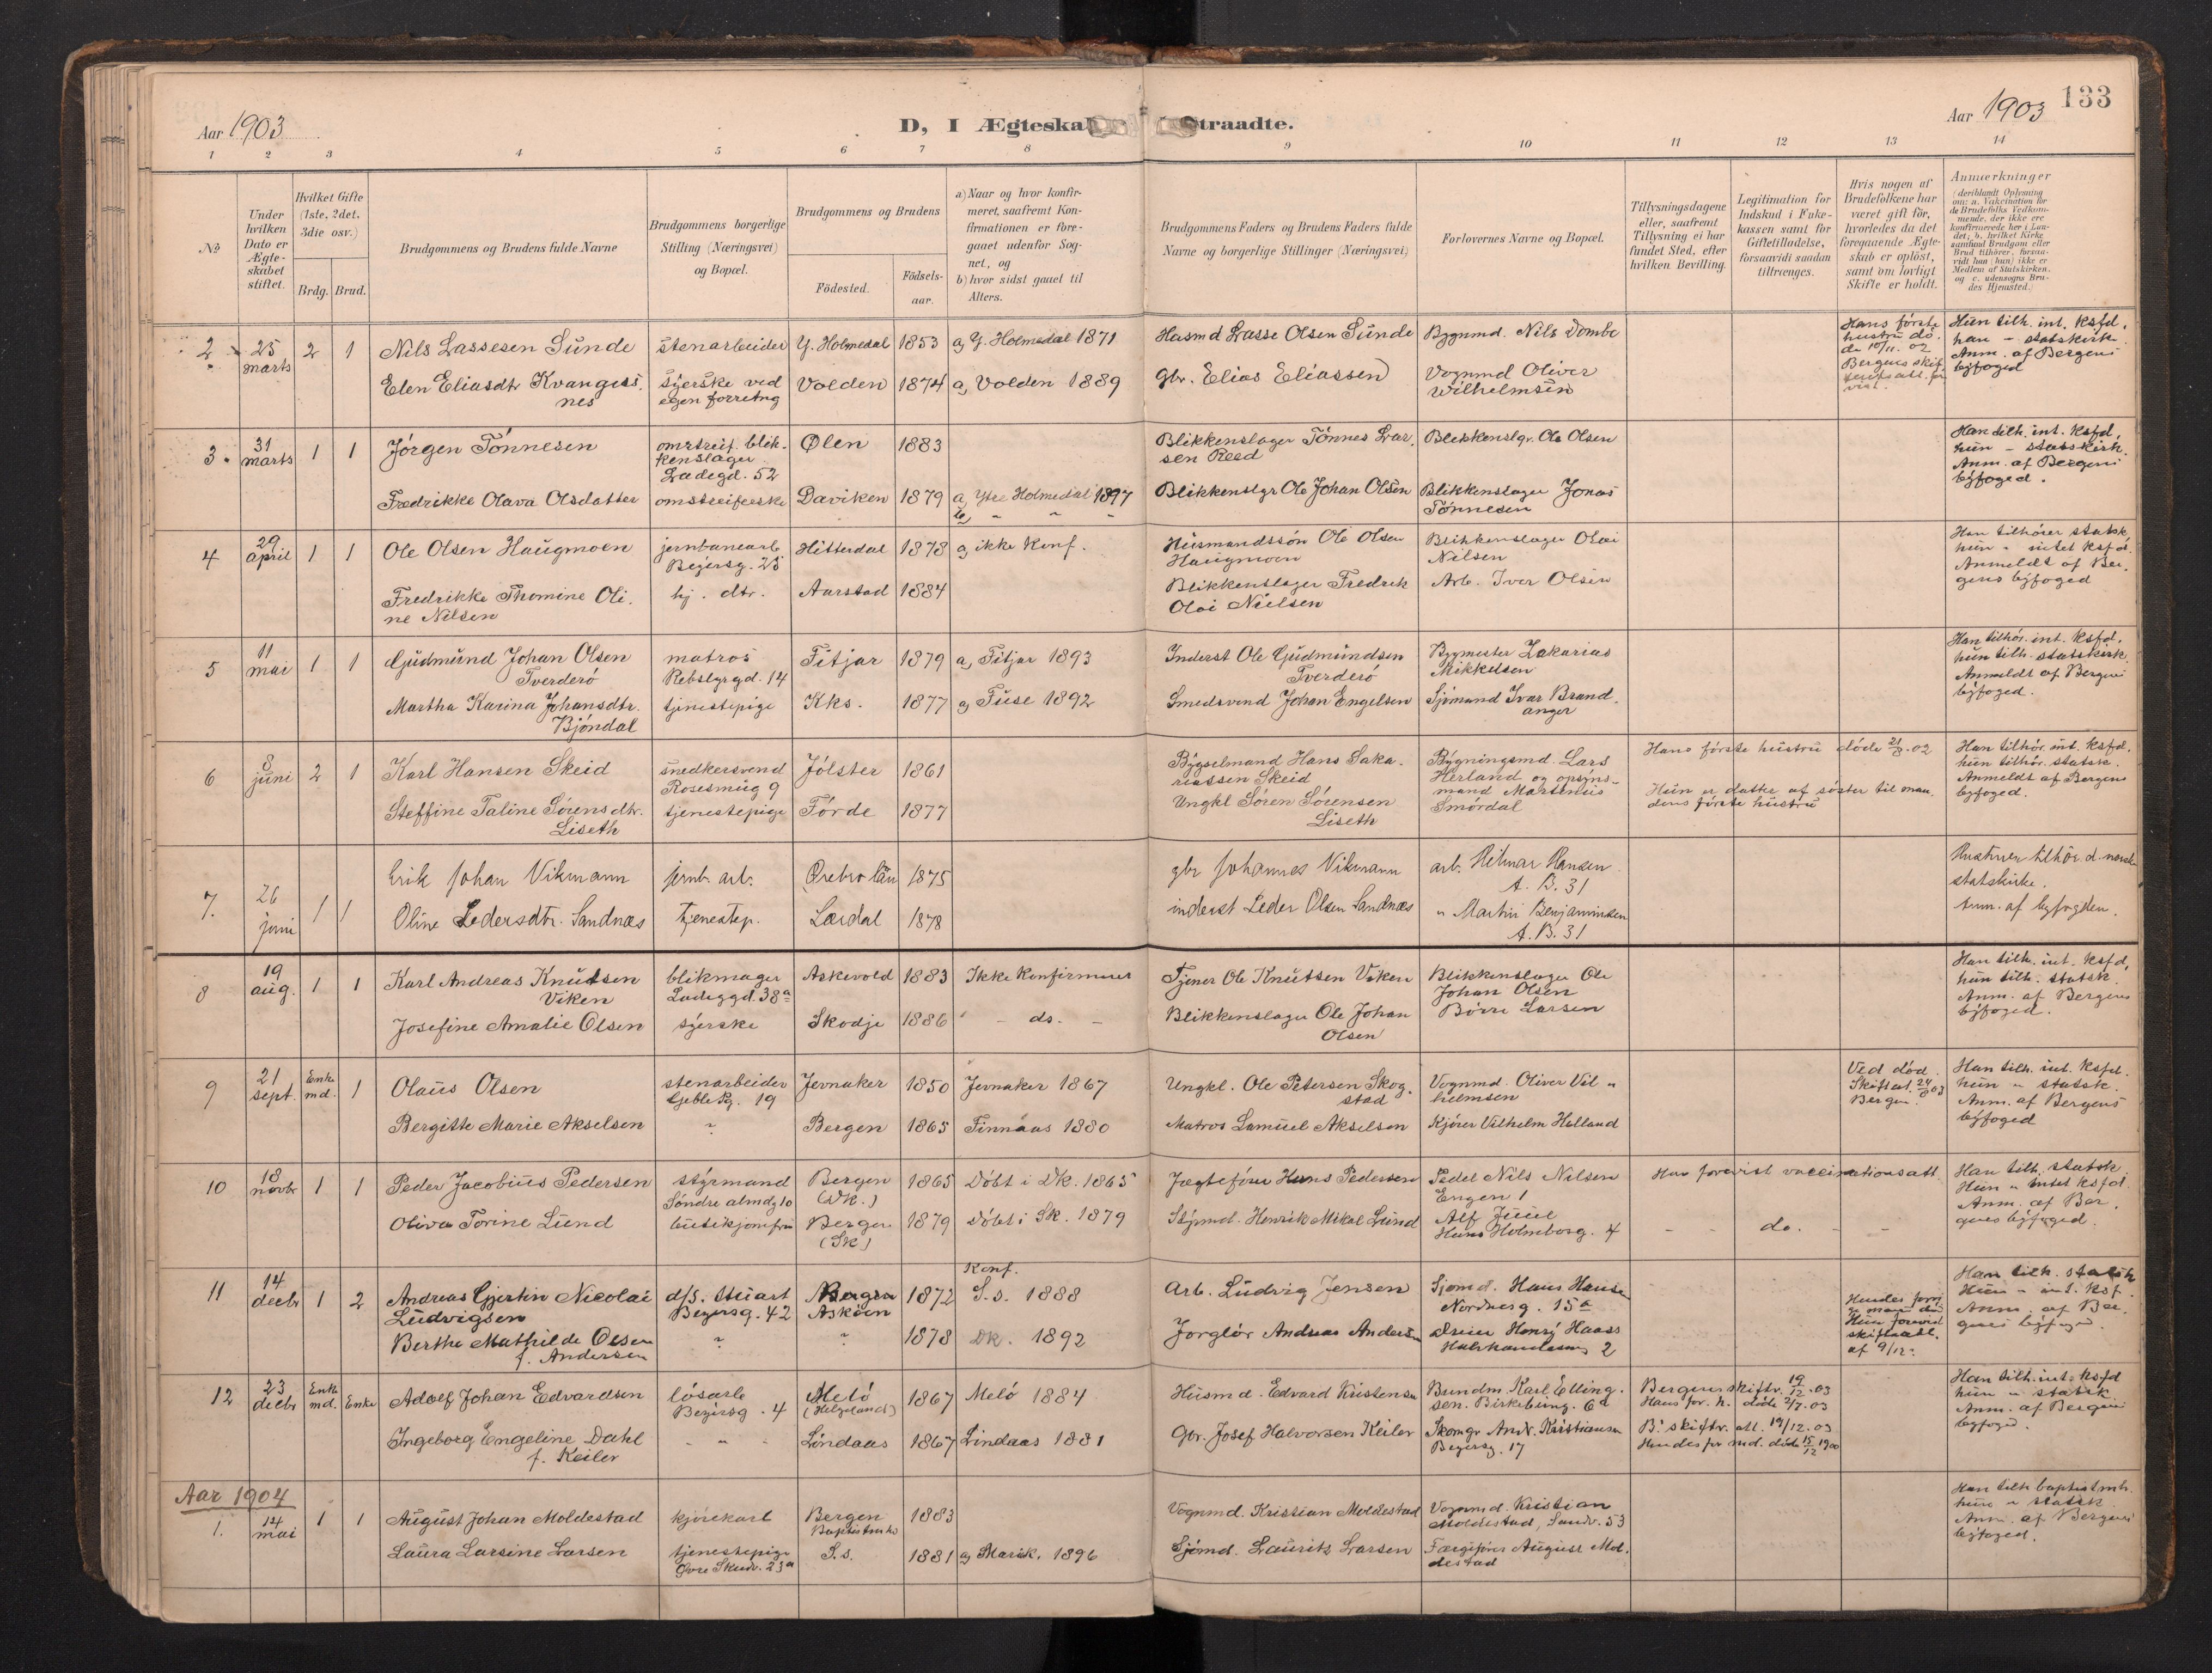 133
Aar 1903
D, I Ægteska
traadte.
Aar 1903
1 2 3 4 5 6 7 8 9 10 11 12 13 14
No
Under hvilken Dato er Ægteskabet stiftet.
Hvilket Gifte (1ste, 2det, 3die osv.)
Brdg. Brud.
Brudgommens og Brudens fulde Navne
Brudgommens borgerlige Stilling (Næringsvei) og Bopæl.
Brudgommens og Brudens
Födested.
Födselsaar.
a) Naar og hvor konfirmeret, saafremt Konfirmationen er foregaaet udenfor Sognet, og
b) hvor sidst gaaet til Alters.
Brudgommens Faders og Brudens Faders fulde Navne og borgerlige Stillinger (Næringsvei)
Forlovernes Navne og Bopæl.
Tillysningsdagene eller, saafremt Tillysning ei har fundet Sted, efter hvilken Bevilling.
Legitimation for Indskud i Enkekassen samt for Giftetilladelse, forsaavidt saadan tiltrænges.
Hvis nogen af Brudefolkene har været gift för, hvorledes da det foregaaende Ægteskab er oplöst, samt om lovligt Skifte er holdt.
Anmærkninger
(deriblandt Oplysning om: a. Vakcination for de Brudefolks Vedkommende, der ikke ere konfirmerede her i Landet; b. hvilket Kirkesamfund Brudgom eller Brud tilhörer, forsaavidt han (hun) ikke er Medlem af Statskirken, og c. udensogns Brudes Hjemsted.)
2 25 marts 2 1 Nils Lassesen Sunde stenarbeider Y. Holmedal 1853 a, Y. Holmedal 1871 Husmd Lasse Olsen Sunde Bygnmd. Nils Dombe
Hans förste hustru döde 10/11. 02
Hun tilh. int. ksfd, han - statskirke. Anm. af Bergens byfoged
Elen Eliasdtr Kvangesnes syerske ved egen forretng Volden 1874 a, Volden 1889 Gbr. Elias Eliassen Vognmd Oliver Wilhelmsen
3. 31 marts 1 1 Jörgen Tönnesen omstreif. blikkenslager Ladegd. 52 Ølen 1883 Blikkenslager Tönnes Larsen Reed Blekkenslgr. Ole Olsen
Han tilh. int. ksfd, hun - statskirk. Anm. af Bergens byfoged.
Fredrikke Olava Olsdatter omstreiferske Daviken 1879 a, Ytre Holmedal 1897 b, " " " Blikkenslgr Ole Johan Olsen Blikkenslager Jonas Tönnesen
4 29 april 1 1 Ole Olsen Haugmoen jernbanearb. Hitterdal 1878 a, ikke Konf. Husmandssön Ole Olsen Haugmoen Blikkenslager Olai Nilsen
Han tilhörer statsk. hun " intet ksfd. Anmeldt af Bergens byfoged
Fredrikke Thomine Oline Nilsen hj. dtr. Aarstad 1884 Blikkenslager Fredrik Olai Nielsen Arb. Iver Olsen
5 11 mai 1 1 Gudmund Johan Olsen Tverderö matros Rebslgrgd. 14 Fitjar 1879 a, Fitjar 1893 Inderst Ole Gudmundsen Tverderö Bygmester Zakarias Mikkelsen
Han tilhör. int. ksfd, hun tilh. statskirk. Anmeldt af Bergens byfoged.
Martha Karina Johansdtr. Bjöndal tjenestepige Kks. 1877 a, Fuse 1892 Smedsvend Johan Engelsen Sjömand Ivar Brandanger
6 8 juni 2 1 Karl Hansen Skeid snedkersvend Rosesmug 9 Jölster 1861 Bygselmand Hans Sakariassen Skeid Bygningsmd. Lars Herland og opsynsmand Martinus Smördal
Hans förste hustru döde 21/8. 02
Han tilhör. int. ksfd. hun tilhör. statsk. Anmeldt af Bergens byfoged.
Steffine Taline Sörensdtr. Liseth tjenestepige Förde 1877 Ungkl Sören Sörensen Liseth
Hun er datter af söster til mandens förste hustru
7. 26 juni 1 1 Erik Johan Vikmann jernb. arb. Ørebro län 1875 gbr Johannes Vikmann arb. Hilmar Hansen A. B. 31
Hustruen tilhör. d. norske statskirke. Anm. af byfogden.
Oline Ledersdtr. Sandnæs tjenestep. Lærdal 1878 inderst Leder Olsen Sandnæs " Martin Benjaminsen A. B. 31
8 19 aug. 1 1 Karl Andreas Knutsen Viken blikmager Ladeggd. 38a Askevold 1883 Ikke Konfirmeret Tjener Ole Knutsen Viken Blikkenslager Ole Johan Olsen
Han tilh. int. ksfd, hun tilh. statsk. Anm. af Bergens byfoged.
Josefine Amalie Olsen syerske Skodje 1886 " - do. - Blikkenslager Ole Johan Olsen Börre Larsen
9 21 sept. Enkemd. 1 Olaus Olsen stenarbeider 19 Jevnaker 1850 Jevnaker 1867 Ungkl. Ole Petersen Skogstad Vognmd. Oliver Vilhelmsen
Ved död. Skifteat. 24/8 03 Bergen.
Han tilh. int. ksfd. hun " statsk. Anm. af Bergens byfoged
Bergitte Marie Akselsen " Bergen 1865 Finnaas 1880 Matros Samuel Akselsen Kjörer Vilhelm Holland
10 18 novbr 1 1 Peder Jacobus Pedersen styrmand Söndre almdg 10 Bergen (Dk.) 1865 Döbt i Dk. 1865 Jægteförer Hans Pedersen Pedel Nils Nilsen Engen 1
Har forevist vaccinationsatt.
Han tilh. statsk. Hun " intet ksfd. Anm. af Bergens byfoged.
Oliva Torine Lund butikjomfru Bergen (Sk) 1879 Döbt i Sk. 1879 Stýrmd. Henrik Mikal Lund Alf Juul Hans Holmborg. 4
- - do. - -
11 14 decbr 1 2 Andreas Gjertin Nicolai Ludvigsen d/s. stuart Beyersg. 42 Bergen Asköen 1872 Konf. S. s. 1888 Arb. Ludvig Jensen Sjömd. Hans Hansen Nordnesg. 15a
Han tilh. statsk Hun - int. ksf. Anm. af Bergens byfoged.
Berthe Mathilde Olsen f. Andersen " " 1878 Dk. 1892 Andreas Andersen Dreier Henry Haass 2
skifteatt. af 9/12.
12 23 decbr Enkemd. Enke Adolf Johan Edvardsen lösarb Beyersg. 4 Melö (Helgeland) 1867 Melö 1884 Husmd. Edvard Kristensen Bundm. Karl Ellingsen. Birkebeing. 6a
Bergens skiftr. 19/12. 03 Hans for. h. döde 2/7. 03
Han tilh. int. ksfd hun " statsk. Anm. af Bergens byfoged.
Ingeborg Engeline Dahl f. Keiler - " - Lindaas 1867 Lindaas 1881 Gbr. Josef Halvorsen Keiler Skomgr Andr. Kristiansen Beyersg. 17
B. skiftr. att. 19/12. 03 Hendes for md. döde 15/12 1900
Aar 1904
1. 14 mai 1 1 August Johan Moldestad kjörekarl Bergen Baptistmh 1883 Vognmd. Kristian Moldestad Vognmd. Kristian Moldestad, Sandv. 53
Han tilh baptistmh. hun " statsk. Anm. af Bergens byfoged.
Laura Larsine Larsen tjenestepige Øvre Skudv. 23a S.s. 1881 a, Marik. 1896 Sjömd. Laurits Larsen August Moldestad